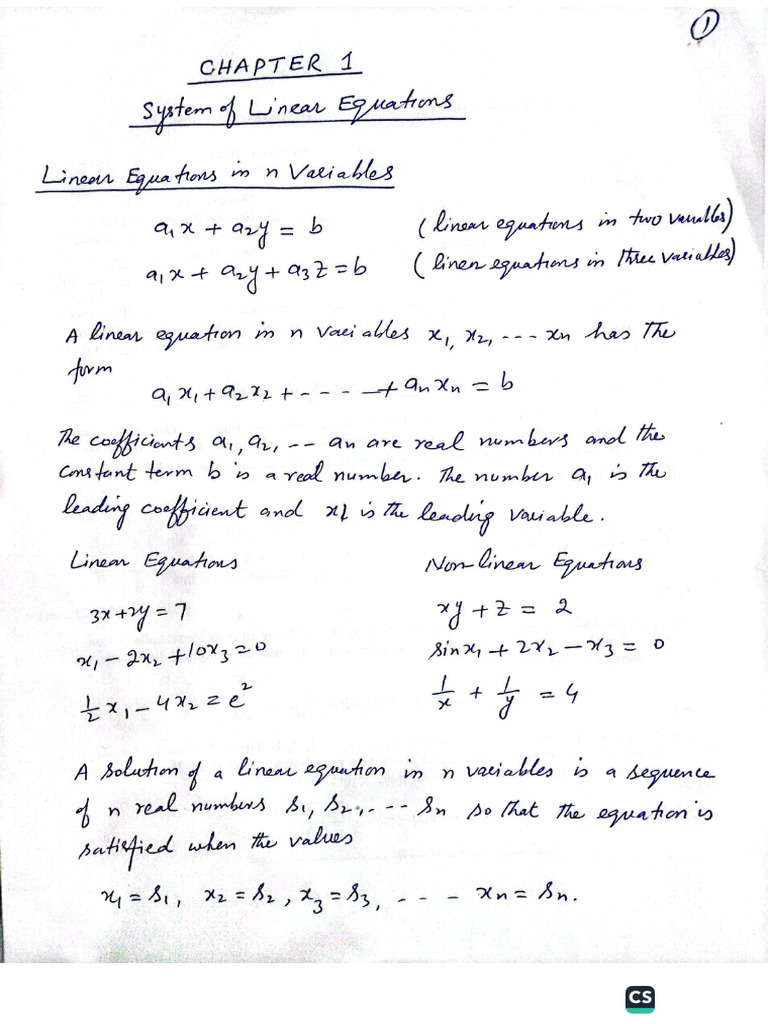 ①
CHAPTER 1
System of Linear Equations
Linear Equations in n Variables
a₁x + a₂y = b (linear equations in two variables)
a₁x + a₂y + a₃z = b (linen equations in three variables)
A linear equation in n variables x₁, x₂, ---- xn has the
form
a₁x₁ + a₂x₂ + - - - - + anxn = b
The coefficients a₁, a₂, -- an are real numbers and the
constant term b is a real number. The number a₁ is the
leading coefficient and x₁ is the leading variable.
Linear Equations Non-linear Equations
3x+2y = 7 xy + z = 2
x₁ - 2x₂ + 10x₃ = 0 sinx₁ + 2x₂ - x₃ = 0
1/2 x₁ - 4x₂ = e² 1/x + 1/y = 4
A solution of a linear equation in n variables is a sequence
of n real numbers s₁, s₂, --- sn so that the equation is
satisfied when the values
x₁ = s₁, x₂ = s₂, x₃ = s₃, - - - xn = sn.
CS